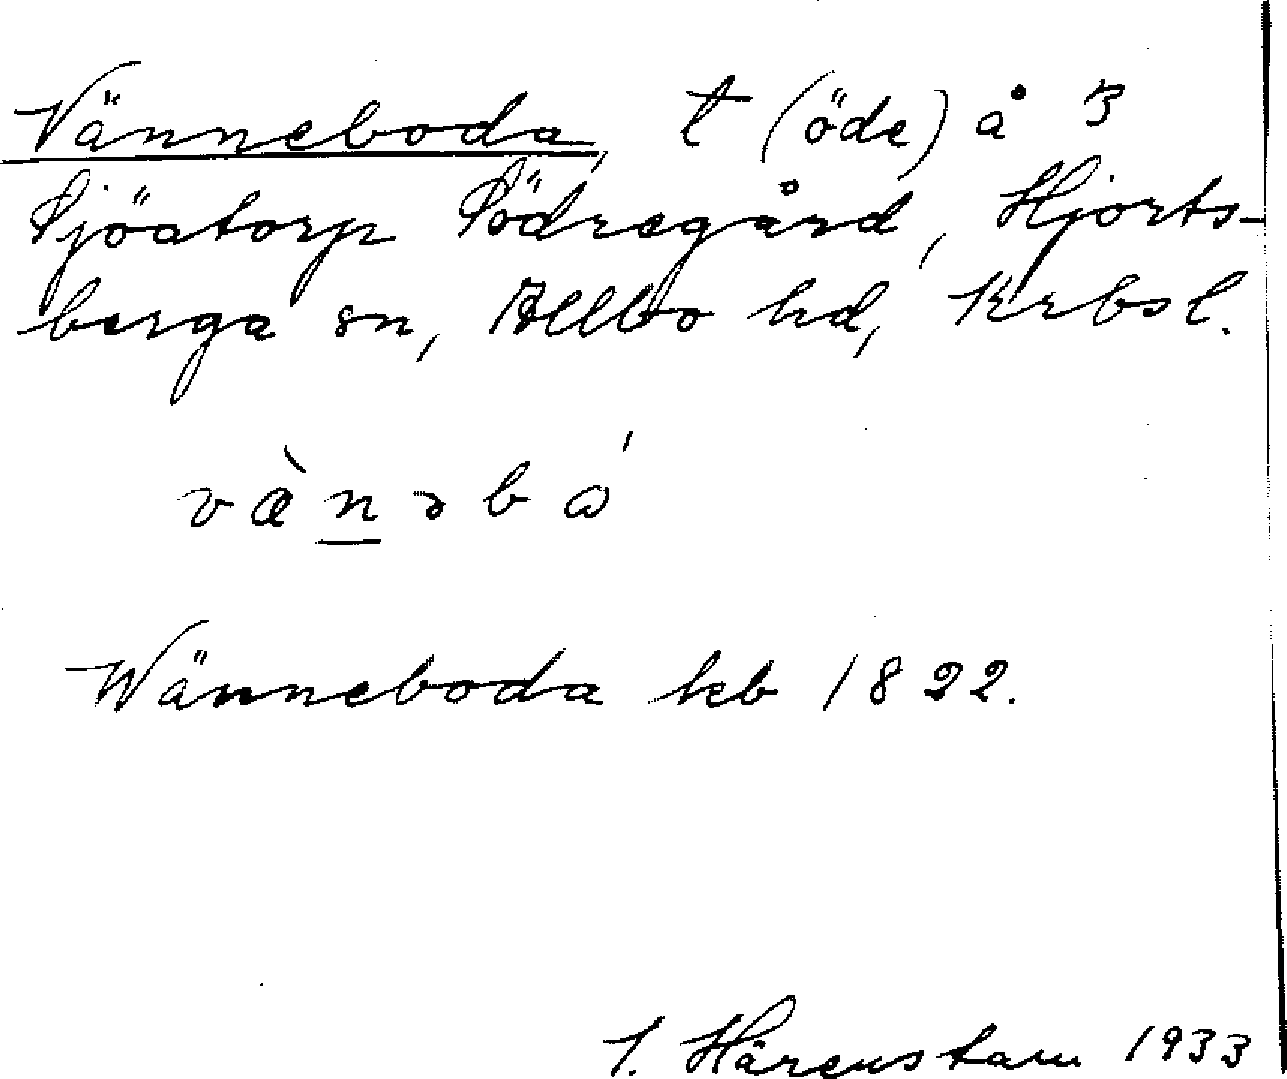 Vänneboda, t (öde) å 3
Sjöatorp Södregård, Hjorts-
berga sn, Allbo hd, Krbsl.
væ̀nəbó
Wänneboda hb 1822.
I. Härenstam 1933